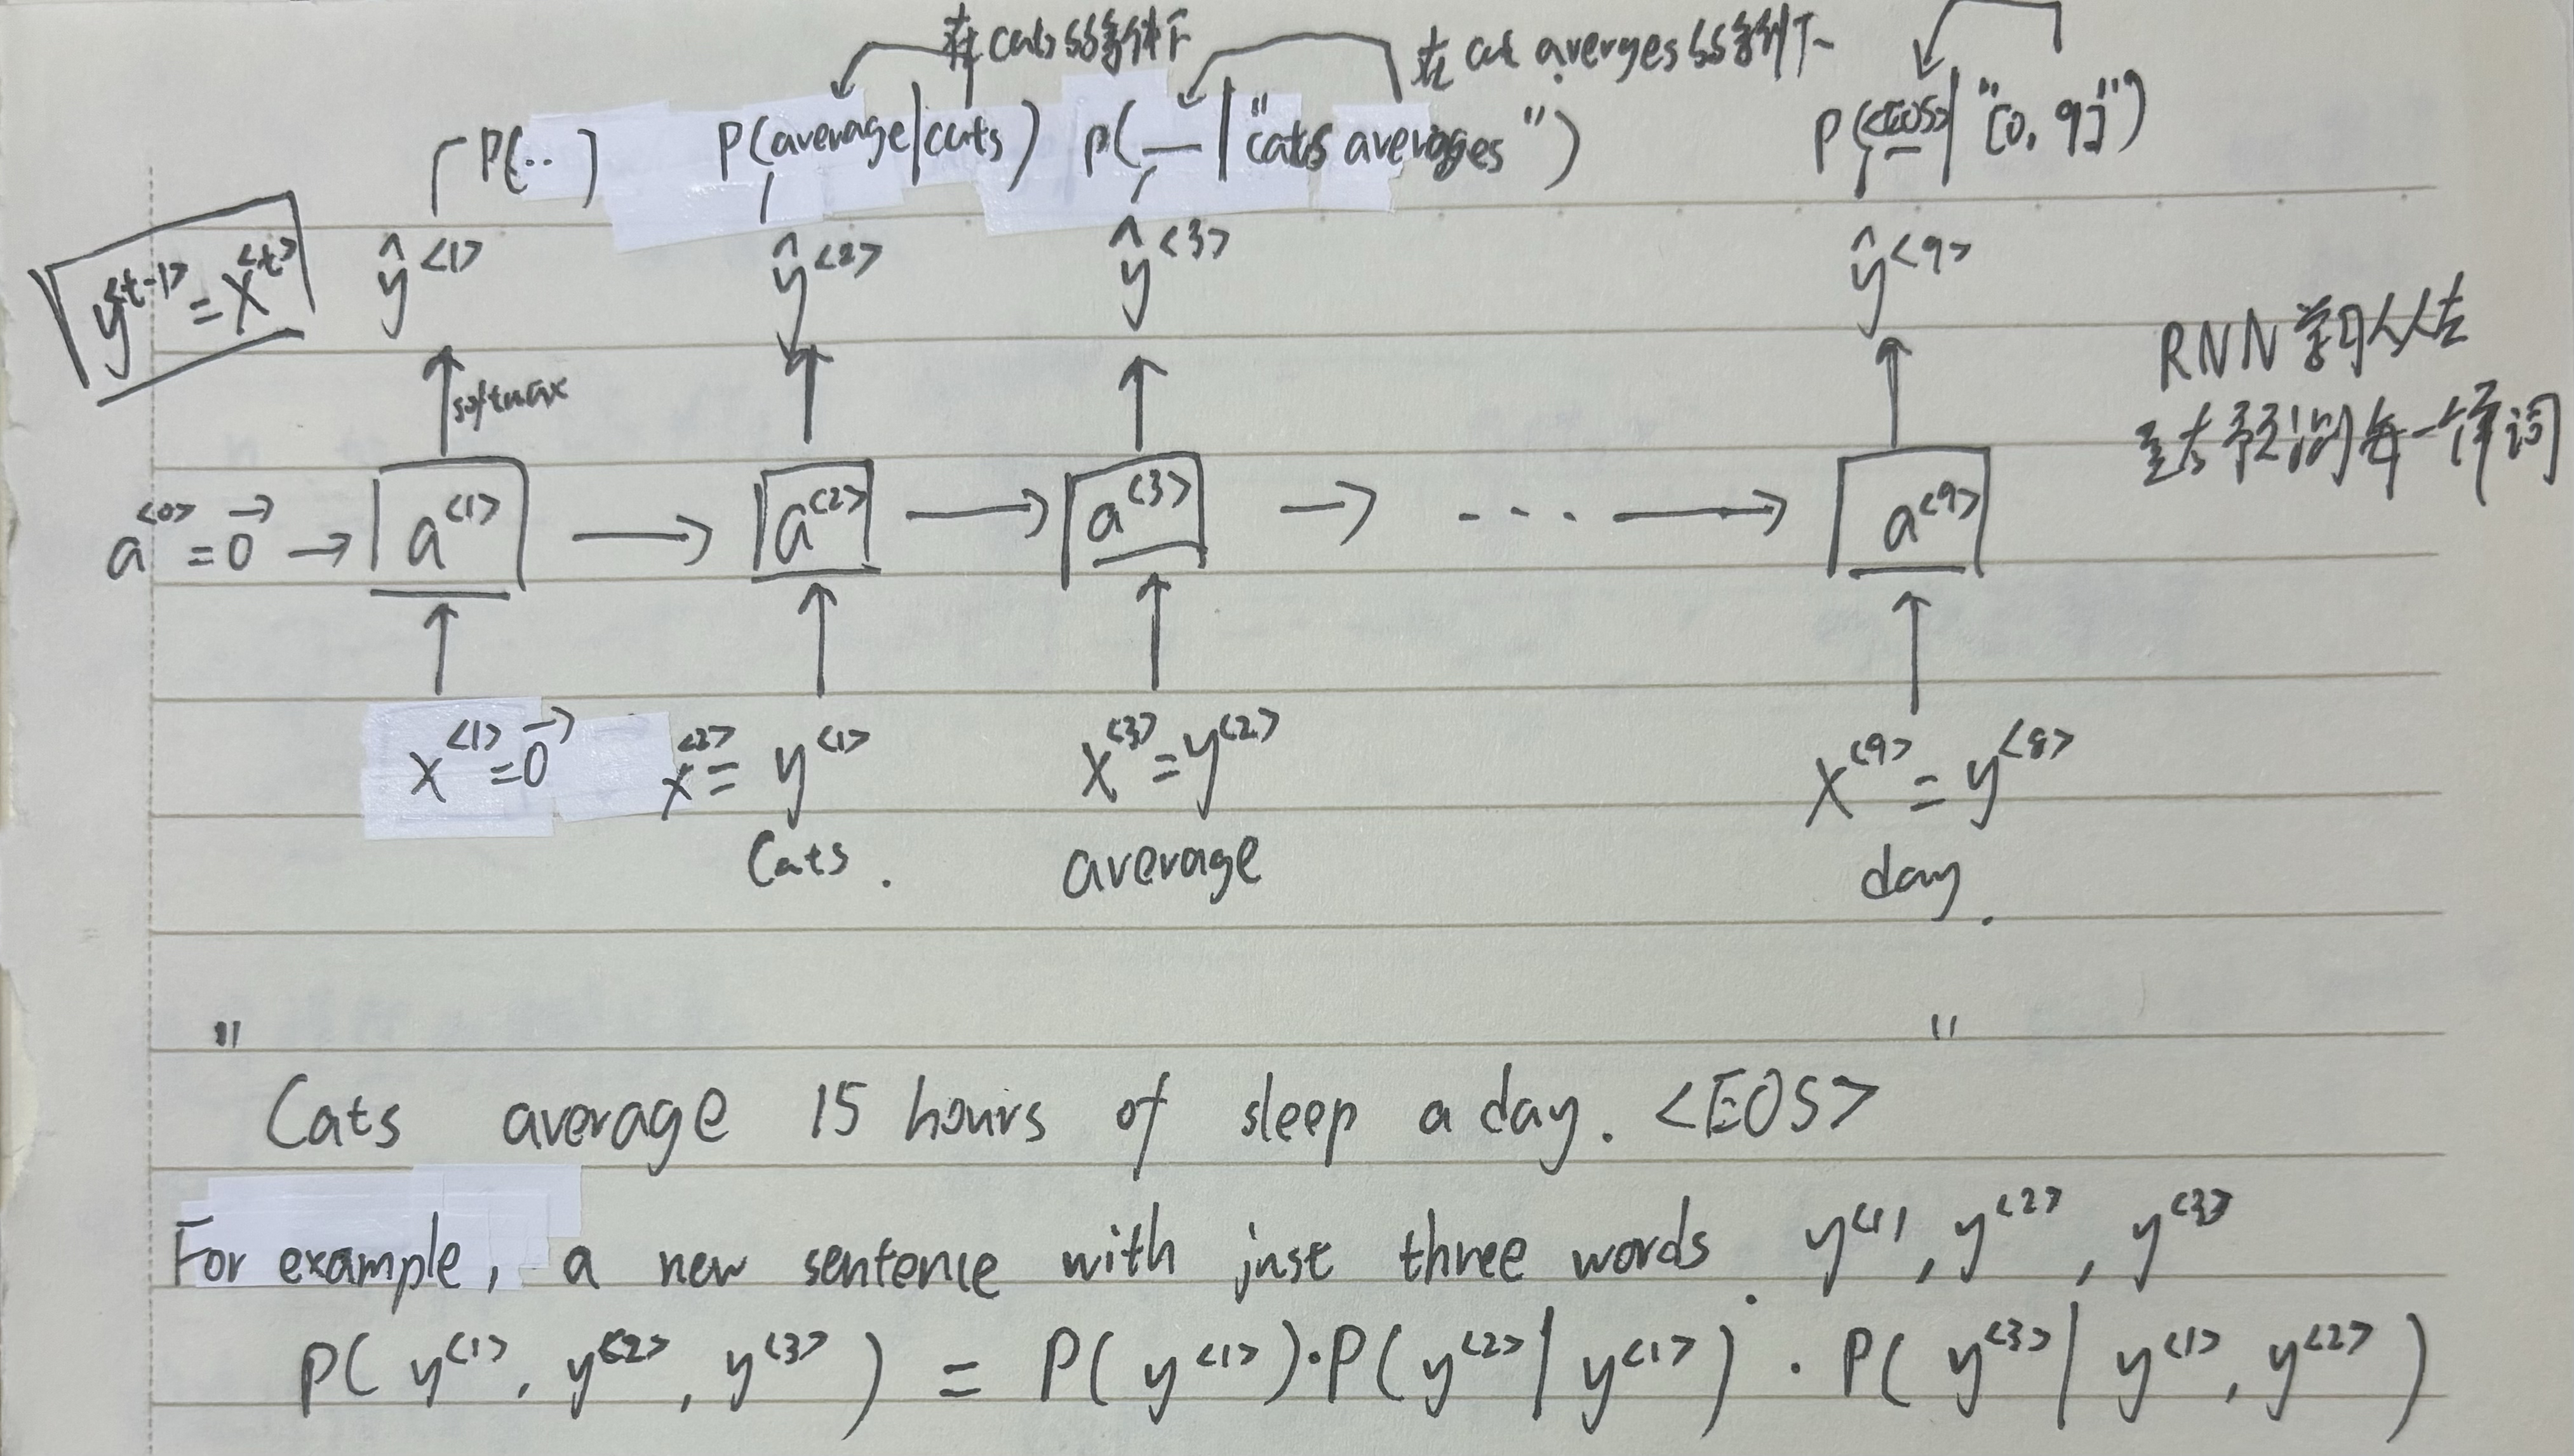 在cats的条件下 在cat averges的条件下
P(..) P(average|cats) P(__|"cats averages") P(<EOS>|"[0, 9]")
y<t-1> = x<t> ŷ<1> ŷ<2> ŷ<3> ŷ<9>
RNN学习从左
softmax
至右预测每一个单词
a<0> = 0⃗ → a<1> → a<2> → a<3> → .... → a<9>
x<1> = 0⃗ x<2> = y<1> x<3> = y<2> x<9> = y<8>
Cats. average day.
"Cats average 15 hours of sleep a day. <EOS>"
For example, a new sentence with just three words. y<1>, y<2>, y<3>
P(y<1>, y<2>, y<3>) = P(y<1>)·P(y<2>|y<1>)·P(y<3>|y<1>, y<2>)